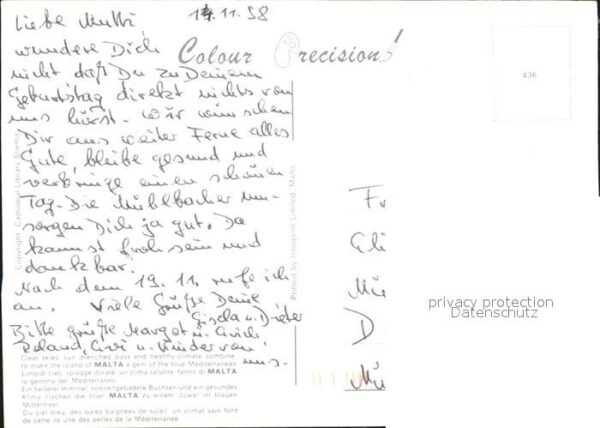 14.11.98
Liebe Mutti
wundere Dich
nicht daß Du zu Deinem
Geburtstag direkt nichts von
uns hörst. Wir wünschen
Dir aus weiter Ferne alles
Gute, bleibe gesund und
verbringe einen schönen
Tag. Die Mühlbacher um-
sorgen Dich ja gut. Da
kannst froh sein und
dankbar.
Nach dem 19.11. rufe ich
an. Viele Grüße Deine
Gisela u. Dieter
Bitte grüße Margot u. Erich
Roland, Evi u. Kinder von
uns.
Colour Precision
436
Copyright: Cathedral Library Sliema
Printed by Interprint Limited, Malta
Fr
Eli
Mü
D
Mü
privacy protection
Datenschutz
Clear skies, sun drenched bays and healthy climate combine
to make the island of MALTA a gem of the blue Mediterranean
Limpidi cieli, spiagge dorate, un clima salubre, fanno di MALTA
la gemma del Mediterraneo
Ein heiterer Himmel, sonnengebadete Buchten und ein gesundes
Klima machen die Insel MALTA zu einem Juwel im blauen
Mittelmeer
Du ciel bleu, des baies baignées de soleil, un climat sain font
de cette ile une des perles de la Méditerranée